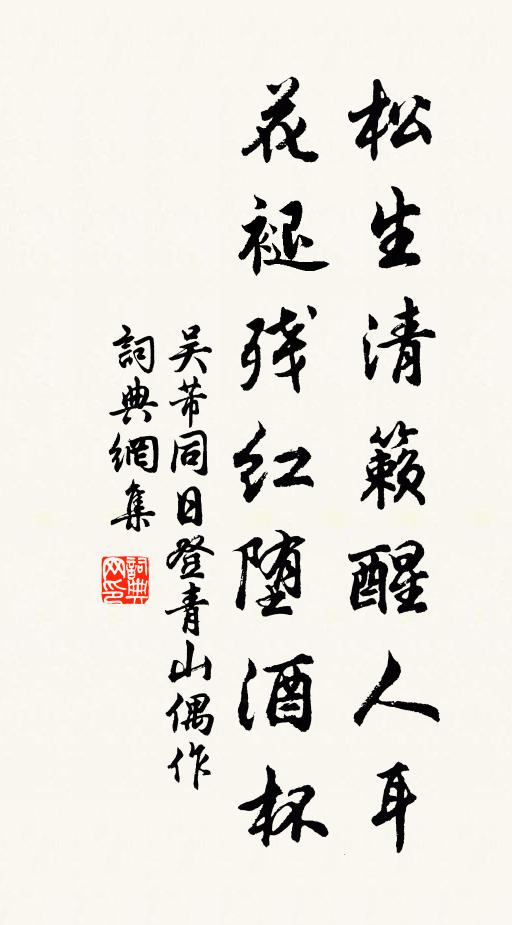 松生清籁醒人耳
花褪残红堕酒杯
吴芾同日登青山偶作
詞典網集
詞典网印